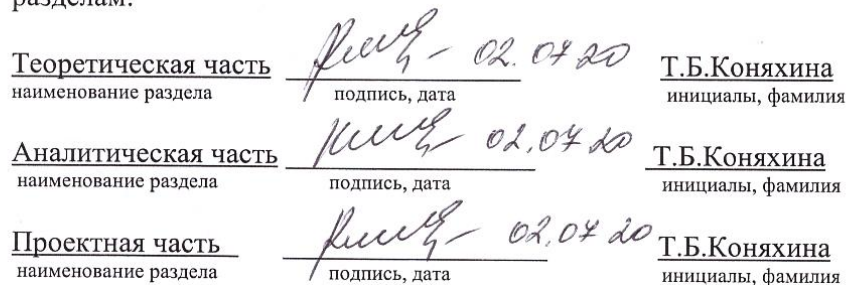 разделам:
Теоретическая часть 02.07 20 Т.Б.Коняхина
наименование раздела подпись, дата инициалы, фамилия
Аналитическая часть 02.07 20 Т.Б.Коняхина
наименование раздела подпись, дата инициалы, фамилия
Проектная часть 02.07 20 Т.Б.Коняхина
наименование раздела подпись, дата инициалы, фамилия